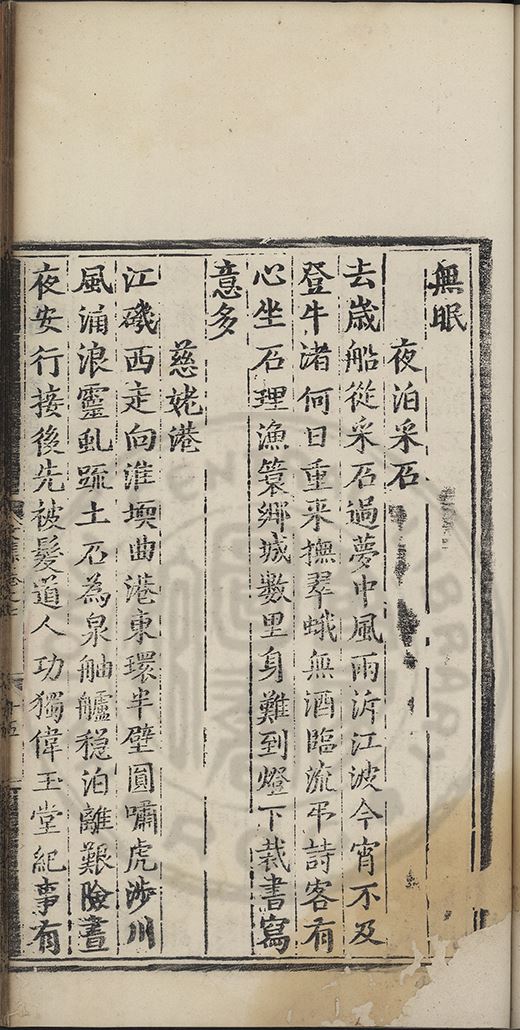 無眠
夜泊采石
去歲船從采石過夢中風雨泝江波今宵不及
登牛渚何日重来撫翠蛾無酒臨流弔詩客有
心坐石理漁簑鄉城數里身難到燈下裁書寫
意多
慈姥港
江磯西走向淮壖曲港東環半壁圓嘯虎渉川
風涌浪靈虬踈土石為泉舳艫穏泊離艱險晝
夜安行接後先被髮道人功獨偉玉堂紀事有